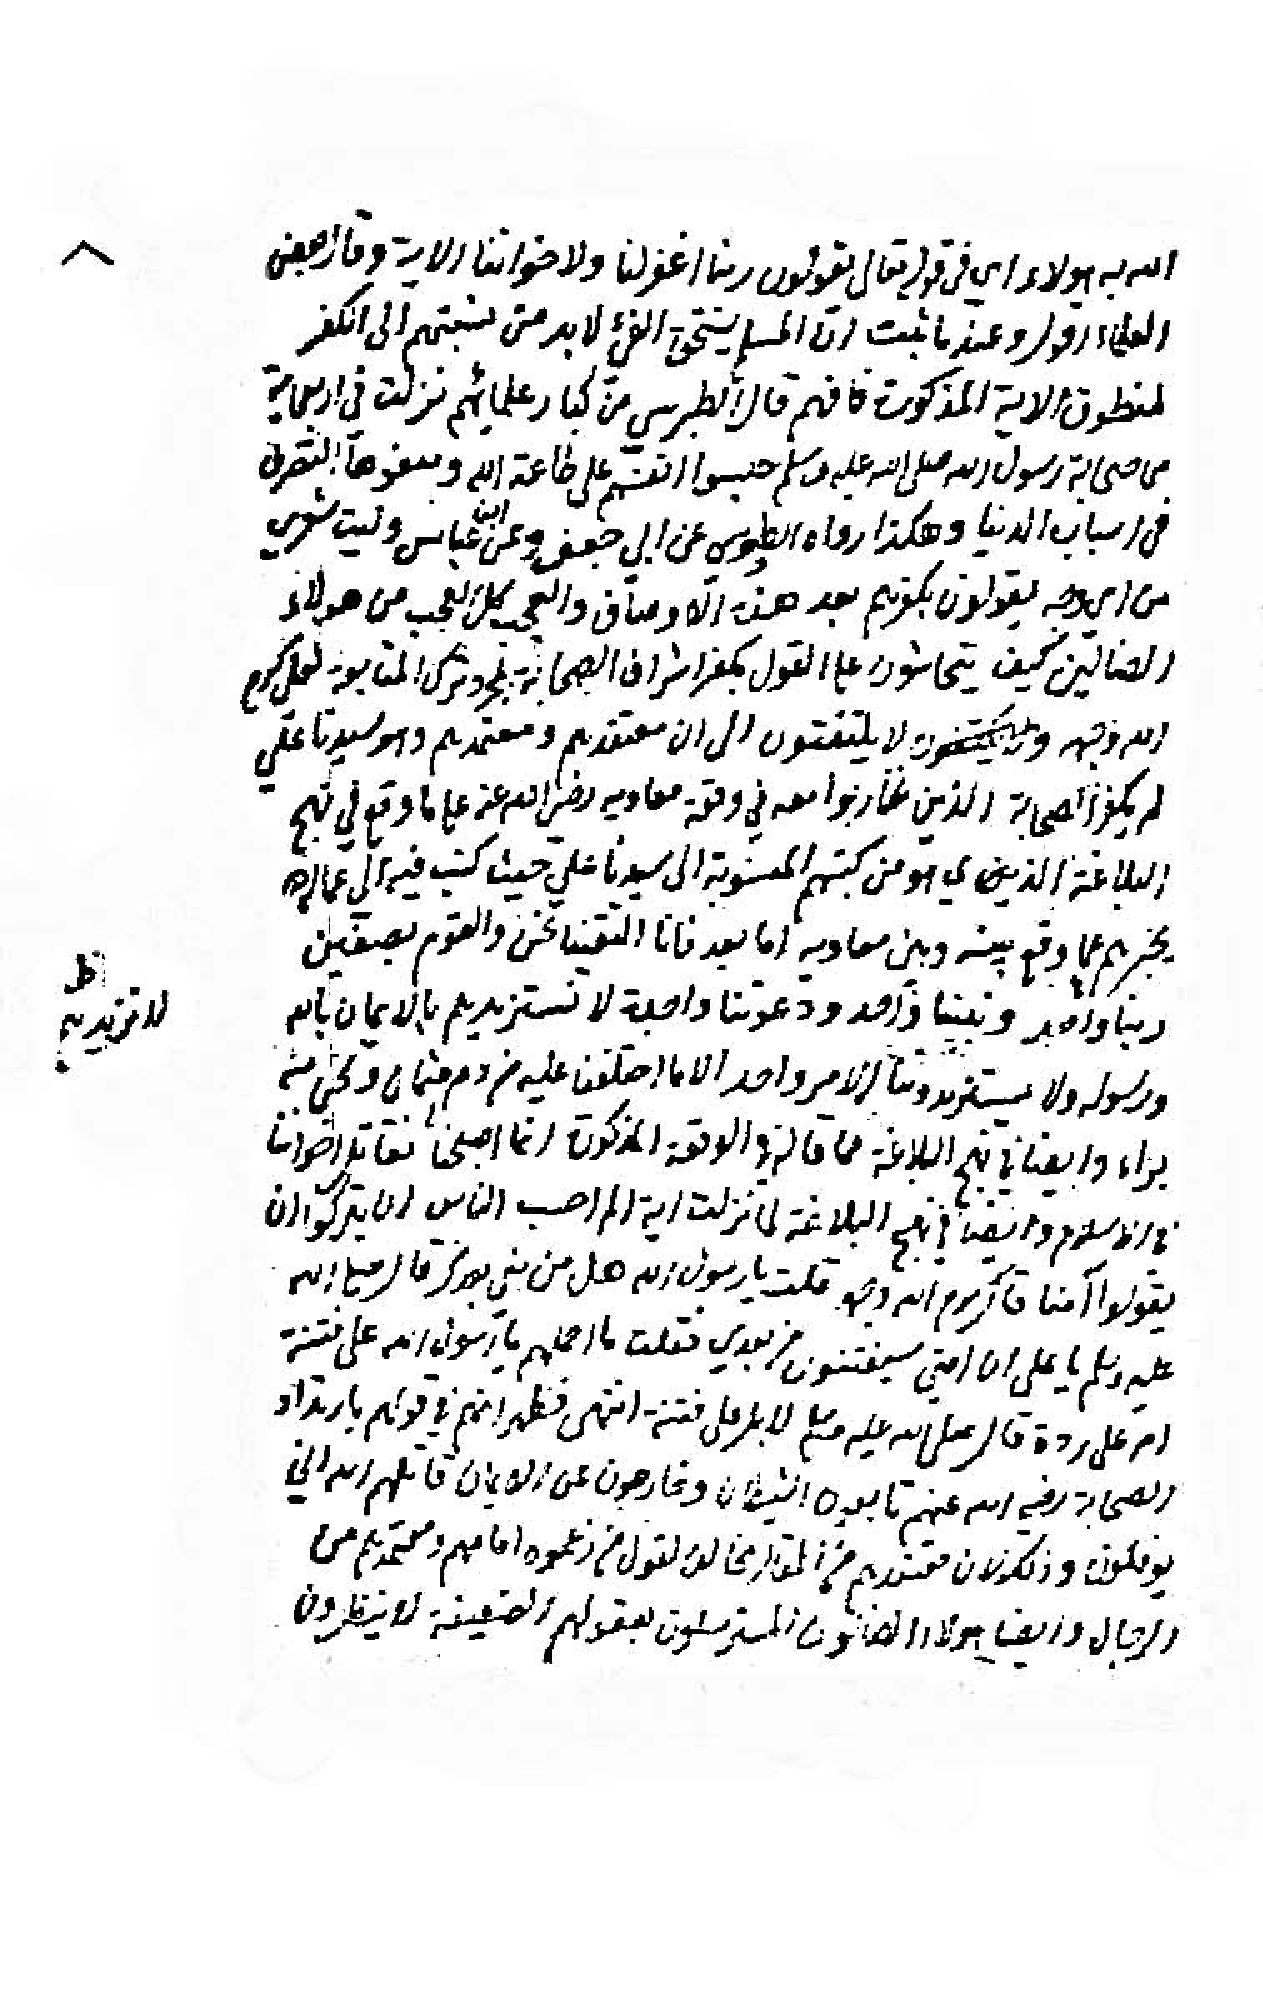 الله به هولاء اي في قوله تعالى يقولون ربنا اغفر لنا ولاخواننا الاية وقال بعض
العلماء اقول وعندما ثبت ان المسلم يستحق الفئ لا بد من نسبتهم الى الكفر
لمنطوق الاية المذكورة فافهم قال الطبرسي من كبار علمائهم نزلت في
من صحابة رسول الله صلى الله عليه وسلم حبسوا انفسهم على طاعة الله ومنعوها التصرف
في اسباب الدنيا وهكذا رواه الطوسي عن ابي جعفر وعن ابن عباس وليت شعري
من اي وجه يقولون بكفرهم بعد هذه الاوصاف والعجب كل العجب من هولاء
الضالين كيف يتحاشون على القول بكفر اشراف الصحابة بمجرد ترك المتابعة لعلي كرم
الله وجهه و لا يلتفتون الى ان معتقدهم ومعتمدهم وهو سيدنا علي
لم يكفر الصحابة الذين تحاربوا معه في وقعة معاويه رضي الله عنه على ما وقع في نهج
البلاغة الذي هو من كتبهم المنسوبة الى سيدنا علي حيث كتب فيه الى عماله
يخبرهم عما وقع بينه وبين معاويه اما بعد فانا التقينا نحن والقوم بصفين
ربنا واحد ونبينا واحد ودعوتنا واحدة لا نستزيدهم بالايمان بالله
ورسوله ولا يستزيدوننا الامر واحد الا ما اختلفنا عليه من دم عثمان ونحن منه
براء وايضا في نهج البلاغة مما قاله في الوقعة المذكورة انما اصبحنا نقاتل اخواننا
في الاسلام وايضا في نهج البلاغة لما نزلت اية الم احسب الناس ان يتركوا ان
يقولوا آمنا قال كرم الله وجهه قلت يا رسول الله هل من بعدك قال صلى الله
عليه وسلم يا علي ان امتي سيفتنون من بعدي فقلت ما احملهم يا رسول الله على فتنة
ام على ردة قال صلى الله عليه وسلم لا بل على فتنة انتهى فظهر انهم في قولهم بارتداد
الصحابة رضي الله عنهم تابعوه الشيطان وخارجون عن الايمان قاتلهم الله انى
يوفكون وذلك لان معتقدهم من المقال مخالف لقول من زعموه امامهم ومعتمدهم من
الرجال وايضا هولاء الضالون المسترسلون بعقولهم الضعيفة لا ينظرون
لا نزيدهم